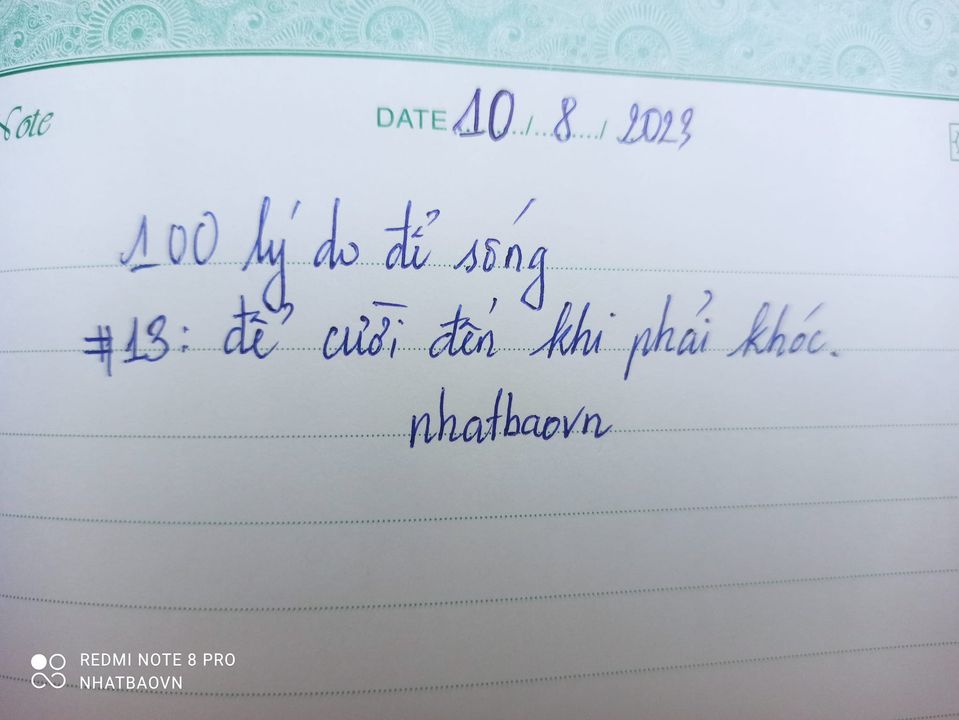 Note
DATE 10/8/2023
100 lý do để sống
#13: để cười đến khi phải khóc.
nhatbaovn
REDMI NOTE 8 PRO
NHATBAOVN